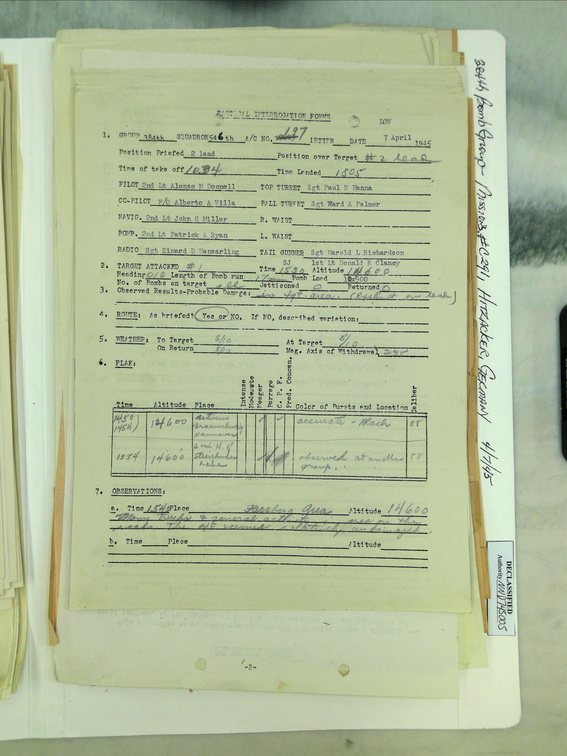 TACTICAL INTERROGATION FORMS
LOW
1. GROUP 384th SQUADRON 546th A/C NO. 197 LETTER DATE 7 April 1945
Position Briefed 2 lead Position over Target #2 lead
Time of take off 1034 Time Landed 1805
PILOT 2nd Lt Alonzo M Donnell TOP TURRET Sgt Paul H Hanna
CO-PILOT F/O Alberto A Villa BALL TURRET Sgt Ward A Palmer
NAVIG. 2nd Lt John C Miller R. WAIST
BOMB. 2nd Lt Patrick A Ryan L. WAIST
RADIO Sgt Kinard D Wensarling TAIL GUNNER Sgt Harold L Richardson
SJ 1st Lt Donald E Clancy
2. TARGET ATTACKED #1 Time 1530 Altitude 14600
Heading 010 Length of Bomb run Bomb Load
No. of Bombs on target all Jettisoned 0 Returned 0
3. Observed Results-Probable Damage: in tgt. area.
4. ROUTE: As briefed? Yes or NO. If NO, described variation:
5. WEATHER: To Target At Target
On Return Mag. Axis of Withdrawal 285
6. FLAK:
Time Altitude Place Intense Moderate Meager Barrage C. P. F. Pred. Concen. Color of Bursts and Location Caliber
14600 Between Braunschweig Hannover accurate - Black 88
14600 Steinhuder observed at another group. 88
7. OBSERVATIONS:
a. Time 1540 Place Altitude 14600
b. Time Place Altitude
-2-
384th Bomb Group- Mission #C291, HITZACKER, GERMANY 4/7/45
DECLASSIFIED
Authority NND745005